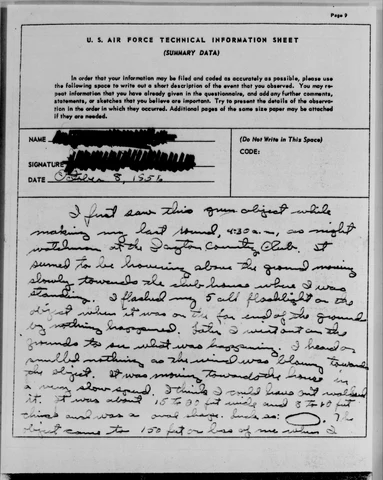 Page 9
U. S. AIR FORCE TECHNICAL INFORMATION SHEET
(SUMMARY DATA)
In order that your information may be filed and coded as accurately as possible, please use
the following space to write out a short description of the event that you observed. You may re-
peat information that you have already given in the questionnaire, and add any further comments,
statements, or sketches that you believe are important. Try to present the details of the observa-
tion in the order in which they occurred. Additional pages of the same size paper may be attached
if they are needed.
NAME
(Do Not Write in This Space)
CODE:
SIGNATURE
DATE October 8, 1956
I first saw this object while
making my last round, 4:30 a.m., as night
watchman at the Dayton Country Club. It
seemed to be hovering above the ground moving
slowly towards the club house where I was
standing. I flashed my 5 cell flashlight on the
object when it was on the far end of the ground
by nothing happened. Later I went out on the
grounds to see what was happening. I heard or
smelled nothing as the wind was blowing towards
the object. It was moving towards the house in
a very slow speed. I think I could have out walked
it. It was about 15 to 20 feet wide and 8 to 10 feet
and was a oval shape. The
object came to 150 feet or less of me when I